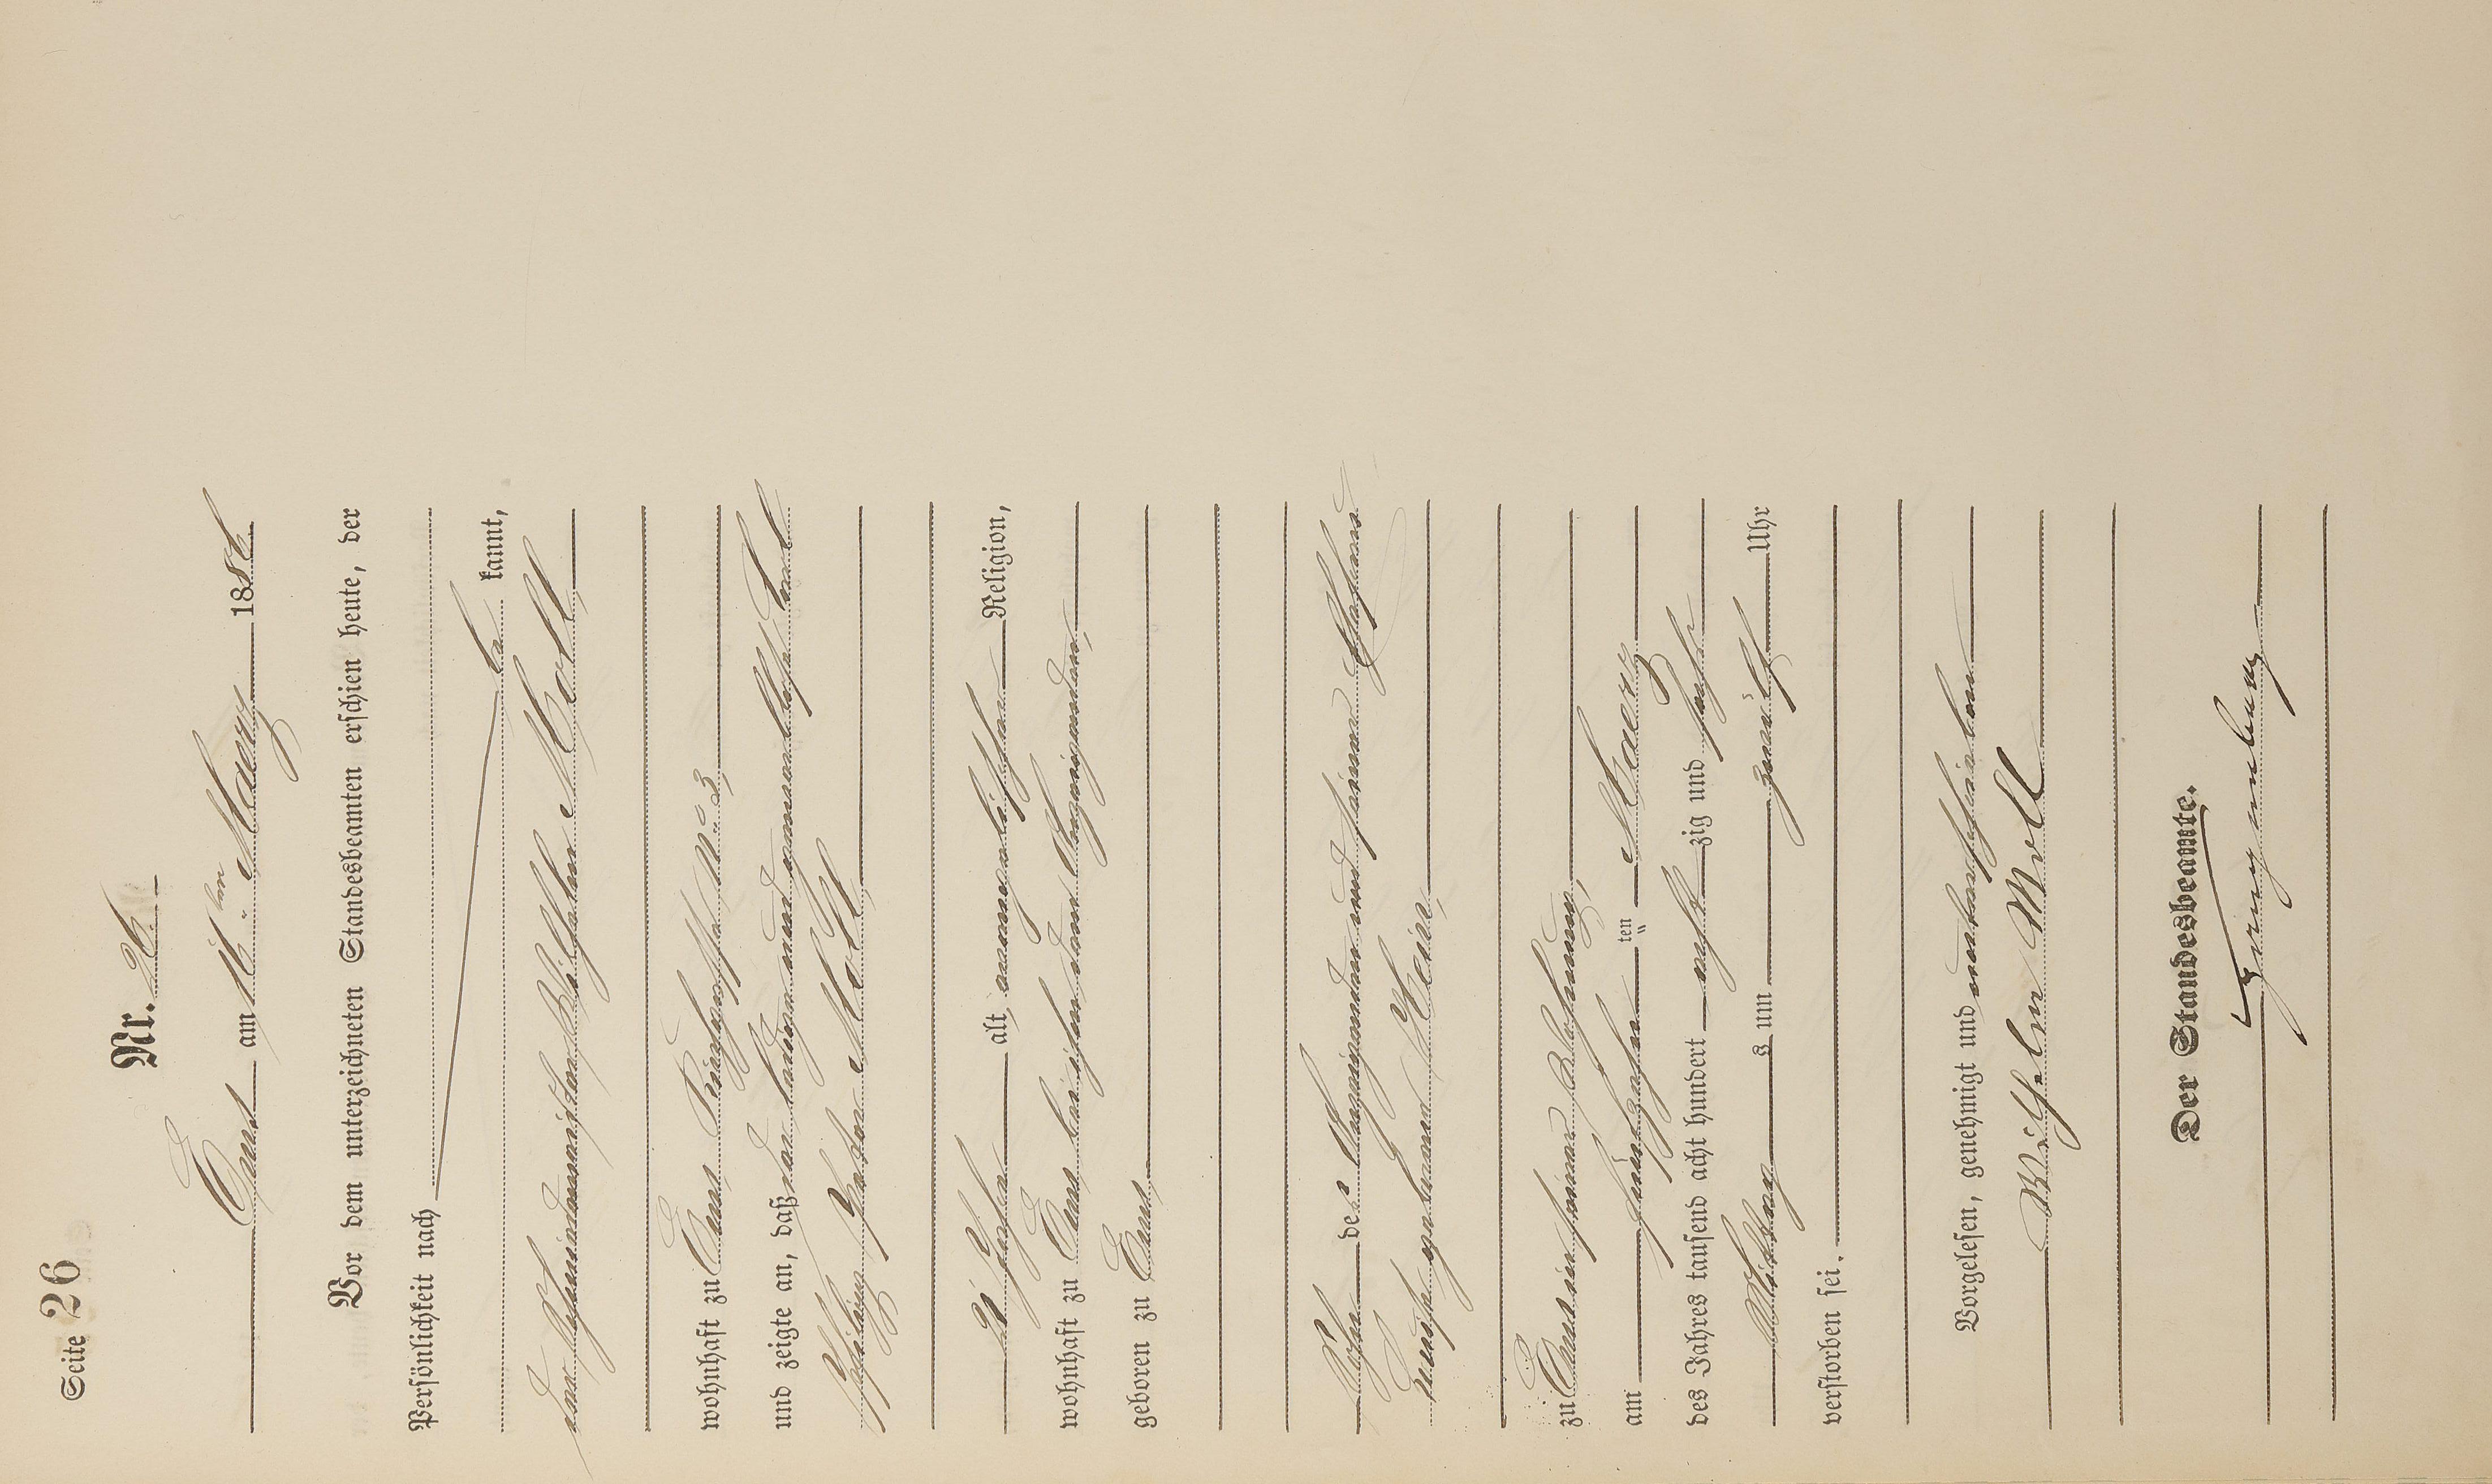 Seite 26
Nr. 26.
Ems am 16ten Maerz 1886
Vor dem unterzeichneten Standesbeamten erschien heute, der
Persönlichkeit nach
be kannt,
der Schreinermeister Wilhelm Moll
wohnhaft zu Ems No 3,
und zeigte an, daß der ledige und
Peter Moll
Jahre alt, evangelischer Religion,
wohnhaft zu Ems bei
geboren zu Ems
Sohn des und seiner Ehefrau
Luise geborene Hein,
zu Ems in seiner Wohnung,
am fünfzehn ten Maerz
des Jahres tausend acht hundert acht zig und sechs
Mittags um zwölf Uhr
verstorben sei.
Vorgelesen, genehmigt und unterschrieben
Wilhelm Moll
Der Standesbeamte.